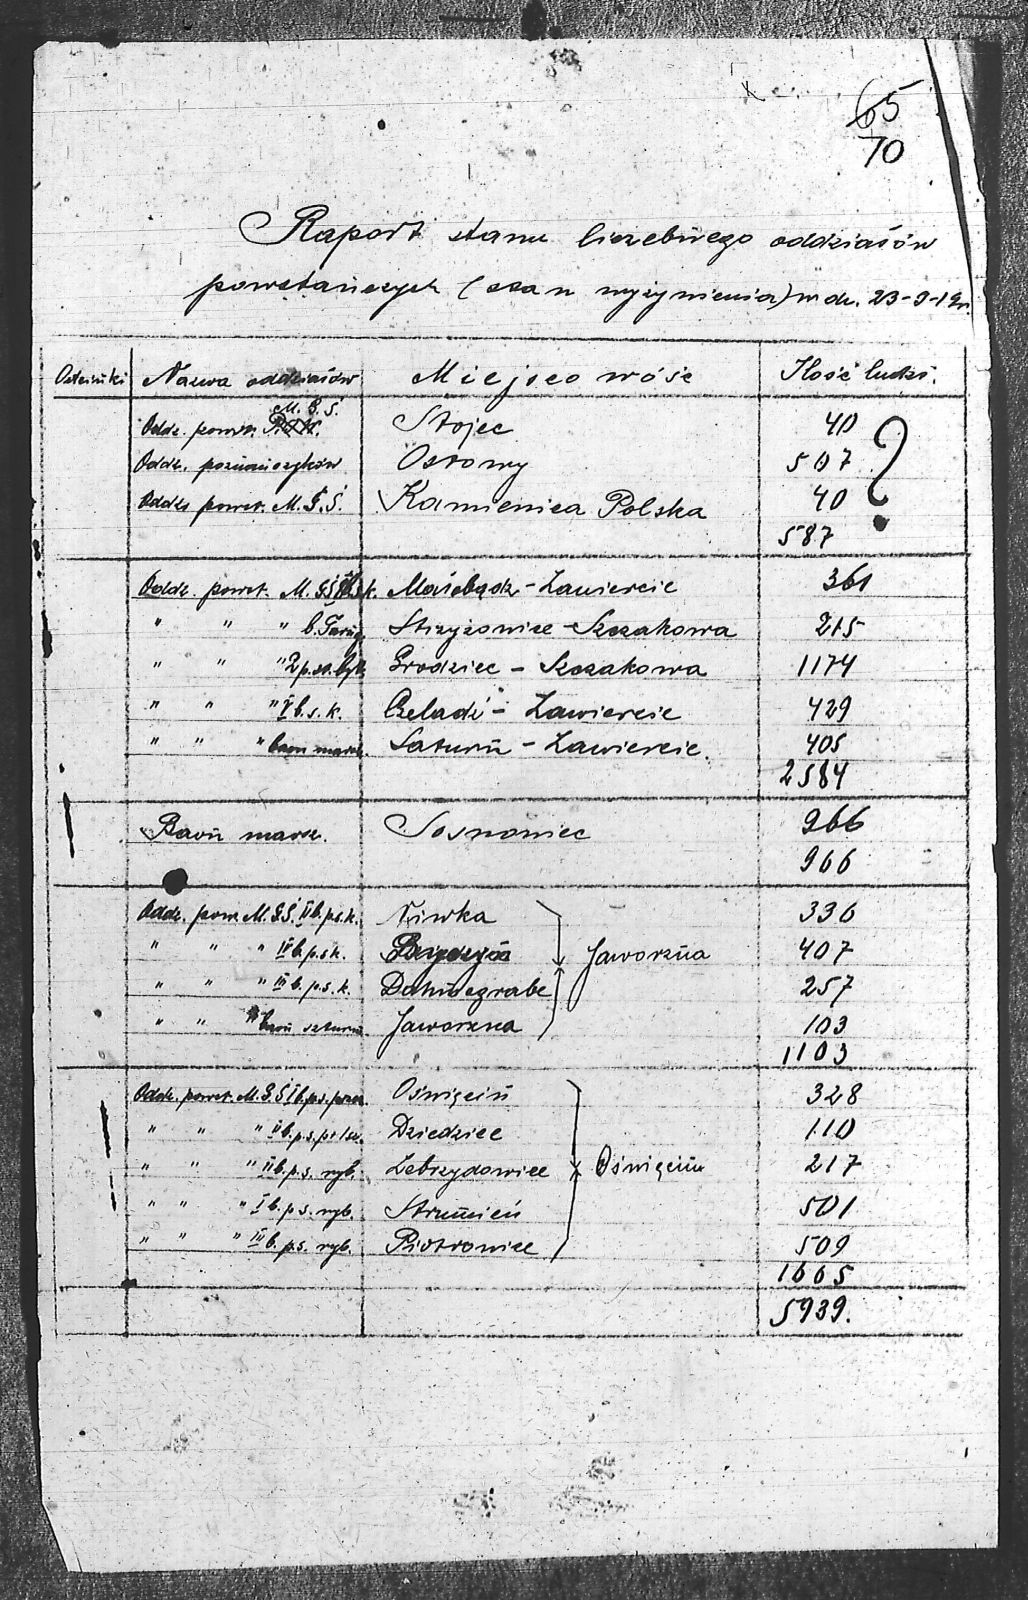 65
70
Raport stanu liczebnego oddziałów
powstańczych (stan wyżywienia) w dn. 23-9-19r.
Odcinki Nazwa oddziałów Miejscowość Ilość ludzi.
M. G. Ś.
Oddz. powst. Stojec 40 ?
Oddz. poznańczyków Ostrowy 507
Oddz. powst. M. G. Ś. Kamienica Polska 40
587
Oddz. powst. M. G. Ś. Małobądz - Zawiercie 361
" " " b. Strzyżowice - Szczakowa 215
" " " 2 p. st. byt. Grodziec - Szczakowa 1174
" " " V b. s. k. Czeladź - Zawiercie 429
" " " baon marsz. Saturn - Zawiercie. 405
2584
Baon marsz. Sosnowiec 966
966
Oddz. pow. M. G. Ś. II b. p. s. k. Niwka 336
" " " IV b. p. s. k. Jaworzna 407
" " " III b. p. s. k. Dańdegrabe 257
" " " baon szturm. Jaworzna 103
1103
Oddz. powst. M. G. Ś. I b. p. s. pszcz. Oświęcim 328
" " " II b. p. s. pszcz. Dziedzice 110
" " " II b. p. s. ryb. Zebrzydowice Oświęcim 217
" " " I b. p. s. ryb. Strumień 501
" " " III b. p. s. ryb. Piotrowice 509
1665
5939.